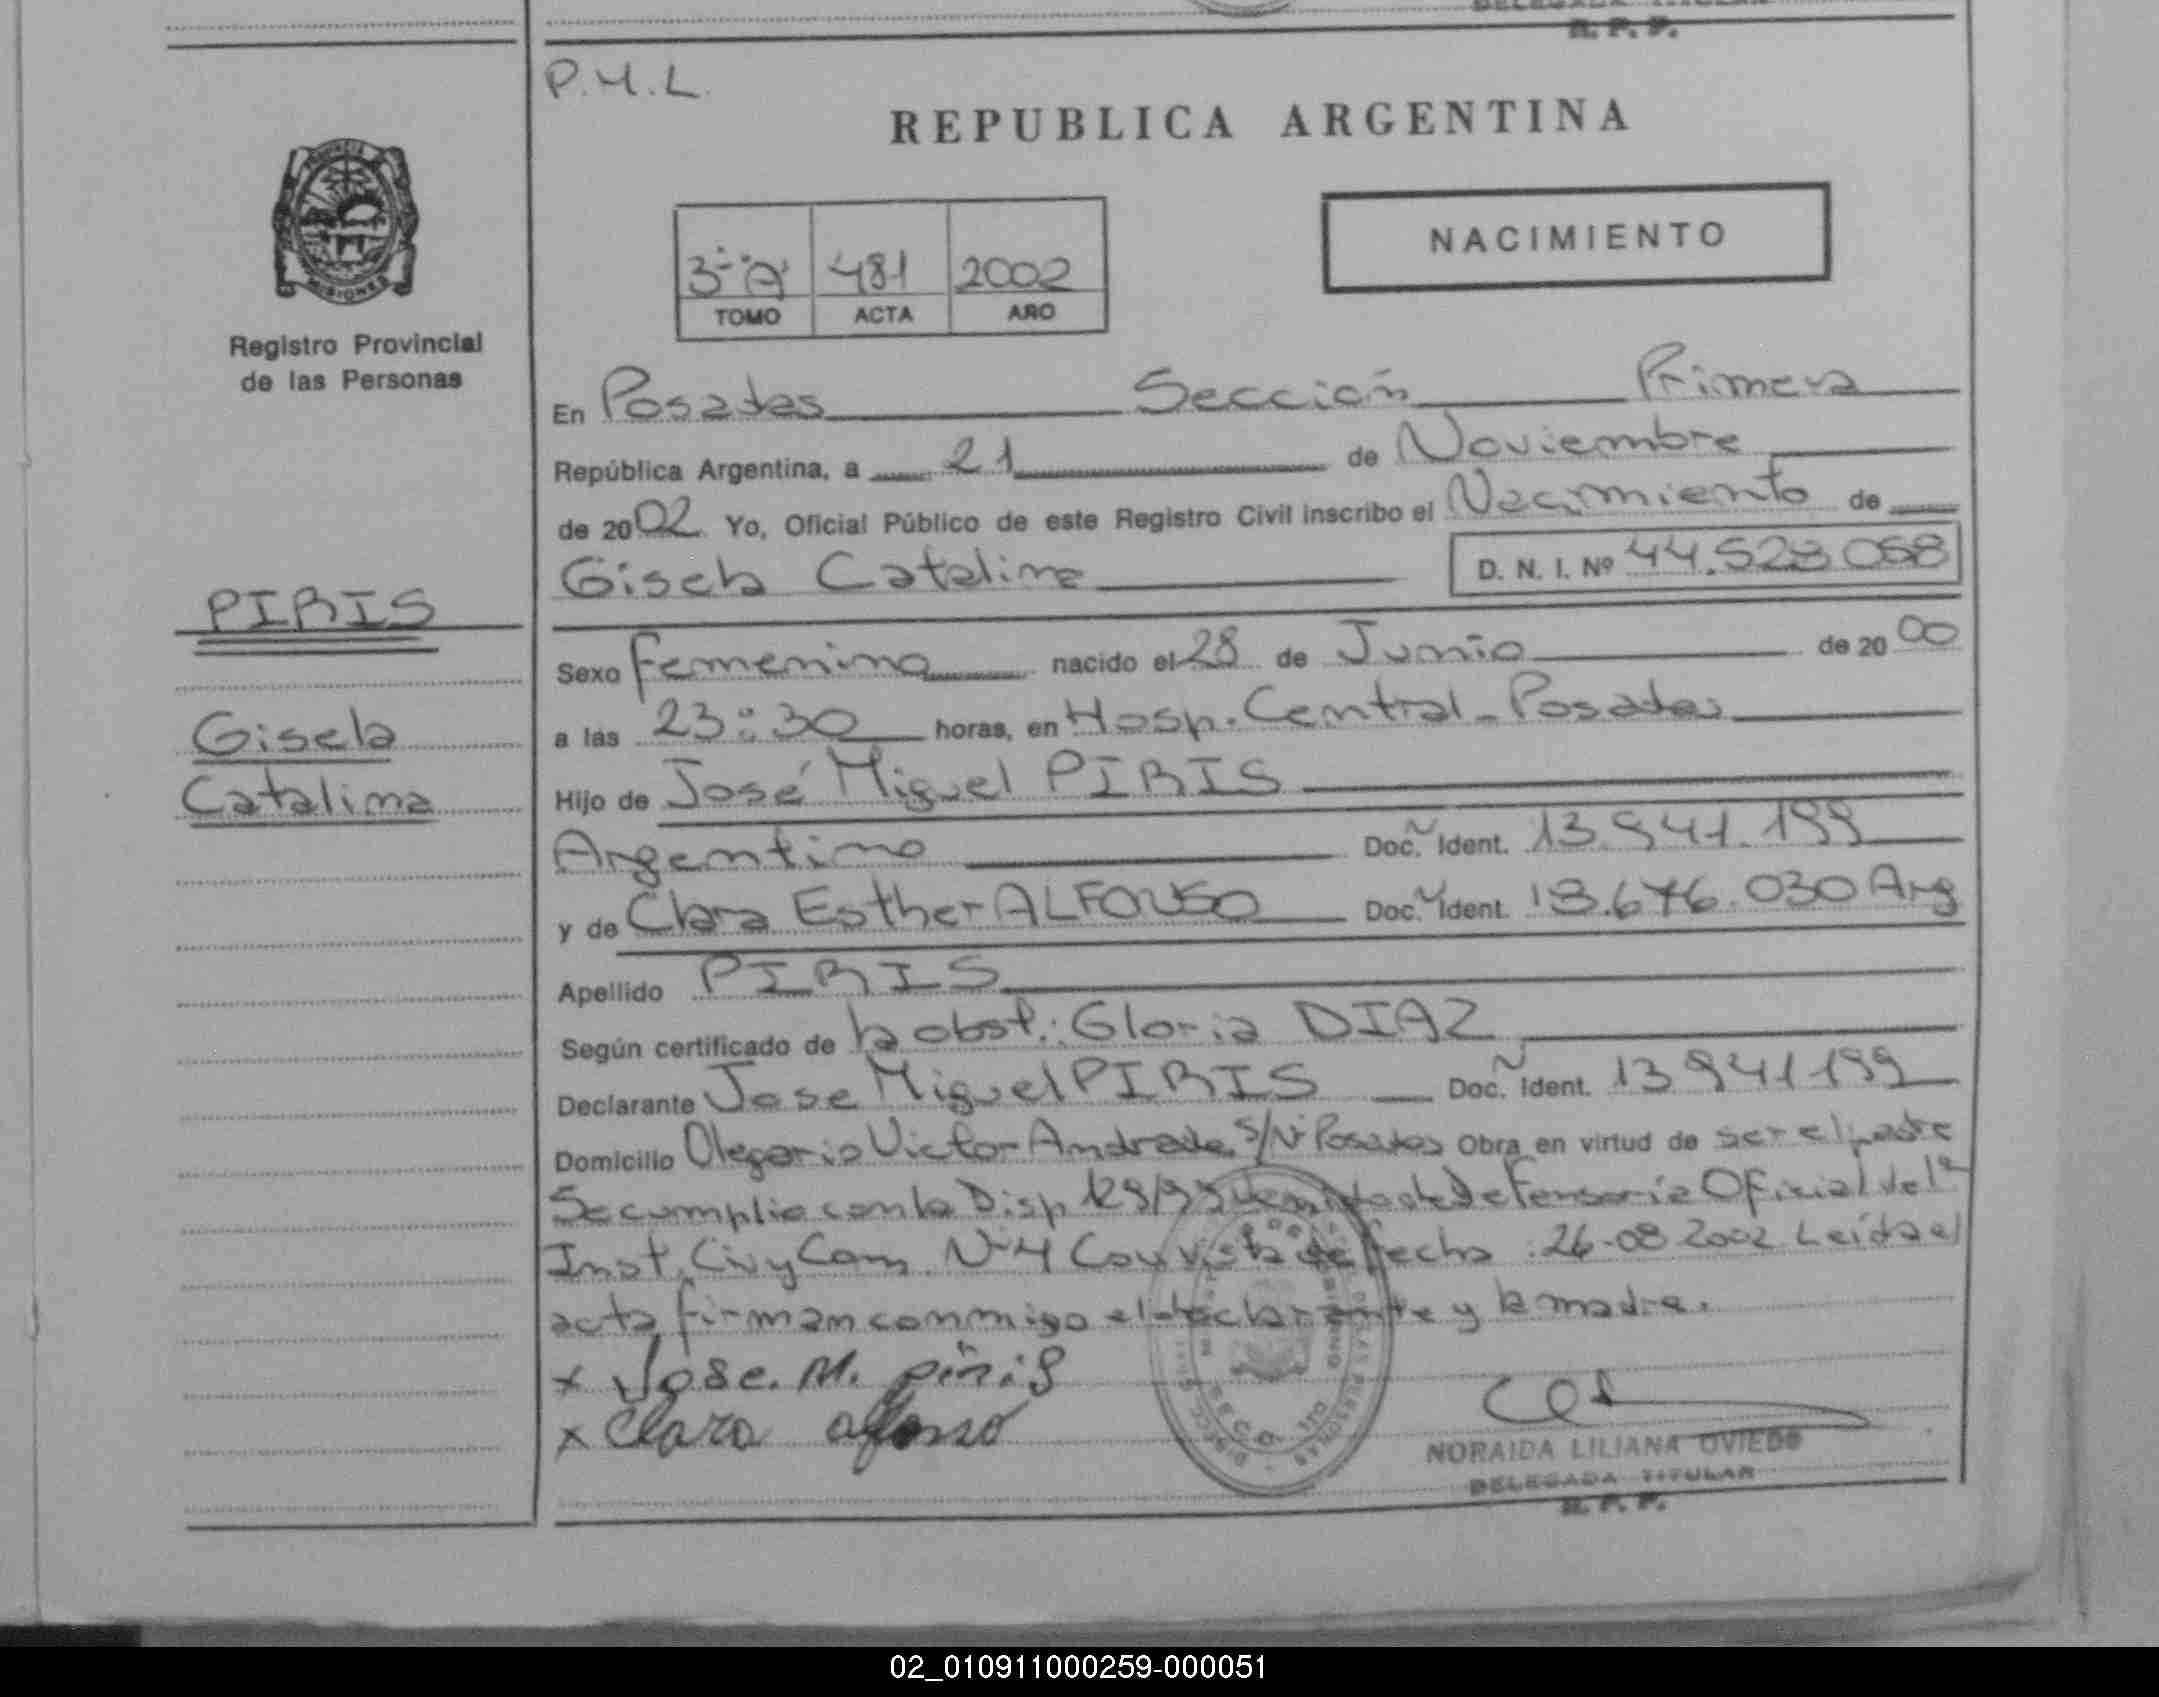 R. P. P.
P.M.L.
REPUBLICA ARGENTINA
NACIMIENTO
3º "A" 481 2002
TOMO ACTA AÑO
MISIONES
Registro Provincial
de las Personas
PIRIS
Gisela
Catalina
En Posadas Sección Primera
República Argentina, a 21 de Noviembre
de 2002 Yo, Oficial Público de este Registro Civil inscribo el Nacimiento de
Gisela Catalina D. N. I. Nº 44.523 068
Sexo femenino nacido el 28 de Junio de 2000
a las 23:30 horas, en Hosp. Central - Posadas
Hijo de José Miguel PIRIS
Argentino Doc. Ident. 13.941.199
y de Clara Esther ALFONSO Doc. Ident. 13.676.030 Arg
Apellido PIRIS
Según certificado de la obst.: Gloria DIAZ
Declarante Jose Miguel PIRIS Doc. Ident. 13 941 199
Domicilio Olegario Victor Andrade S/Nº Posadas Obra en virtud de ser el padre
Se cumplio con la Disp de Defensoría Oficial de 1ª
Inst. Civ y Com. Nº 4 Con vista de fecha 26-08 2002 Leída el
acta firman conmigo el declarante y la madre.
x Jose. M. piris
x Clara afonso
NORAIDA LILIANA OVIEDO
DELEGADA TITULAR
R. P. P.
02_010911000259-000051